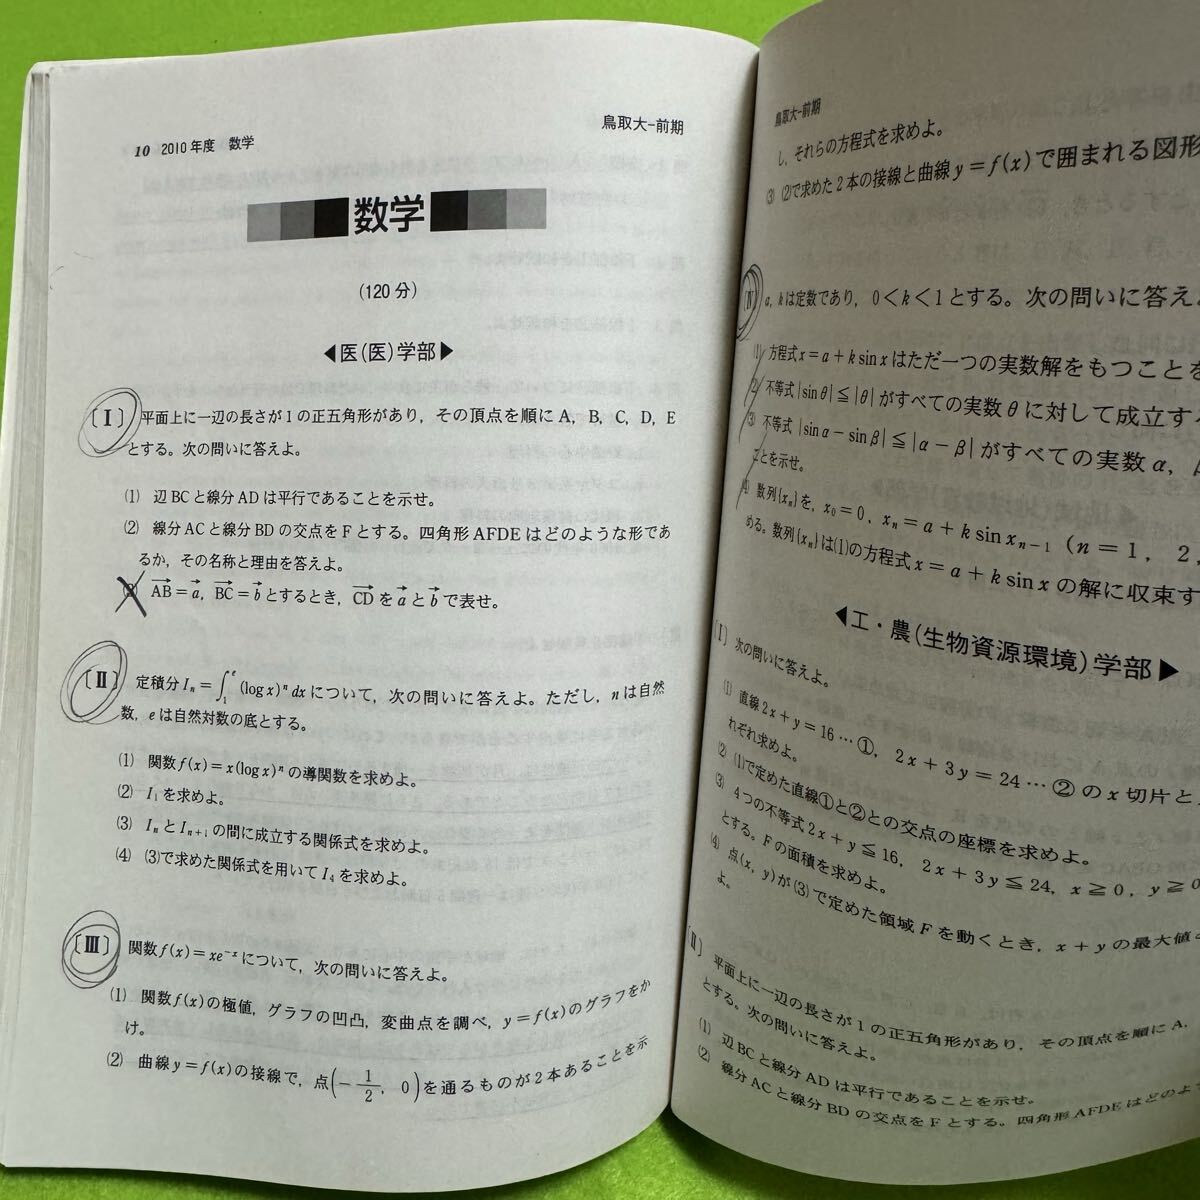 10 2010年度 数学
鳥取大-前期
数学
(120分)
◀医(医)学部▶
〔Ⅰ〕 平面上に一辺の長さが1の正五角形があり，その頂点を順にA，B，C，D，E
とする。次の問いに答えよ。
(1) 辺BCと線分ADは平行であることを示せ。
(2) 線分ACと線分BDの交点をFとする。四角形AFDEはどのような形であ
るか，その名称と理由を答えよ。
(3) AB→=a→，BC→=b→とするとき，CD→をa→とb→で表せ。
〔Ⅱ〕 定積分Iₙ=∫₁ᵉ(log x)ⁿdxについて，次の問いに答えよ。ただし，nは自然
数，eは自然対数の底とする。
(1) 関数f(x)=x(log x)ⁿの導関数を求めよ。
(2) I₁を求めよ。
(3) IₙとIₙ₊₁の間に成立する関係式を求めよ。
(4) (3)で求めた関係式を用いてI₄を求めよ。
〔Ⅲ〕 関数f(x)=xe⁻ˣについて，次の問いに答えよ。
(1) 関数f(x)の極値，グラフの凹凸，変曲点を調べ，y=f(x)のグラフをか
け。
(2) 曲線y=f(x)の接線で，点(-1/2，0)を通るものが2本あることを示
鳥取大-前期
し，それらの方程式を求めよ。
(3) (2)で求めた2本の接線と曲線y=f(x)で囲まれる図形
〔Ⅳ〕 a，kは定数であり，0<k<1とする。次の問いに答え
(1) 方程式x=a+k sin xはただ一つの実数解をもつことを
(2) 不等式|sinθ|≦|θ|がすべての実数θに対して成立する
(3) 不等式|sinα-sinβ|≦|α-β|がすべての実数α，
ことを示せ。
(4) 数列{xₙ}を，x₀=0，xₙ=a+k sin xₙ₋₁ (n=1，2，
める。数列{xₙ}は(1)の方程式x=a+k sin xの解に収束す
◀工・農(生物資源環境)学部▶
〔Ⅰ〕 次の問いに答えよ。
(1) 直線2x+y=16…①，2x+3y=24…②のx切片と
れぞれ求めよ。
(2) (1)で定めた直線①と②との交点の座標を求めよ。
(3) 4つの不等式2x+y≦16，2x+3y≦24，x≧0，y≧0
とする。Fの面積を求めよ。
(4) 点(x，y)が(3)で定めた領域Fを動くとき，x+yの最大値
よ。
〔Ⅱ〕 平面上に一辺の長さが1の正五角形があり，その頂点を順にA，
とする。次の問いに答えよ。
(1) 辺BCと線分ADは平行であることを示せ。
(2) 線分ACと線分BDの交点をFとする。四角形AFDEはどのよう